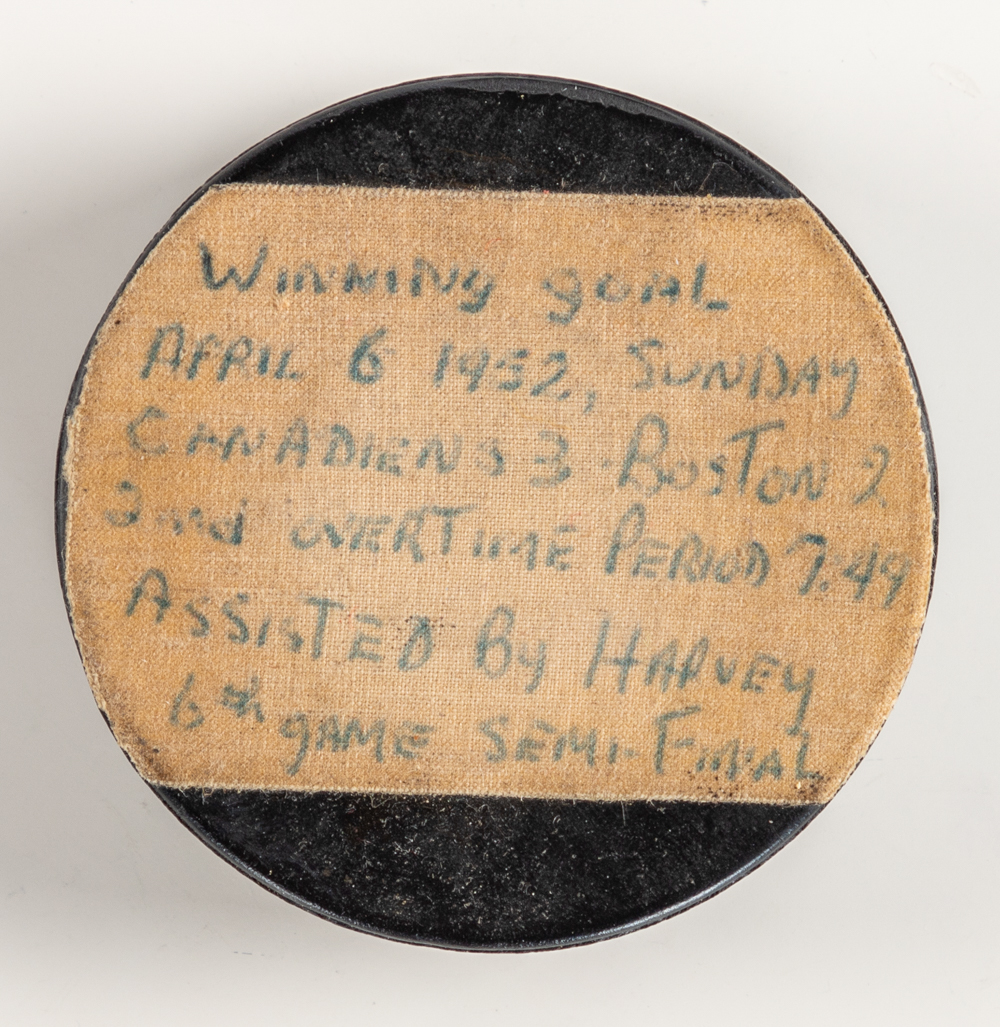 WINNINg gOAL
APRIL 6 1952, SUNDAY
CANADIENS 3 - BOSTON 2
2nd OVERTIME PERIOD 7:49
ASSISTED By HARVEY
6th gAME SEMI-FINAL